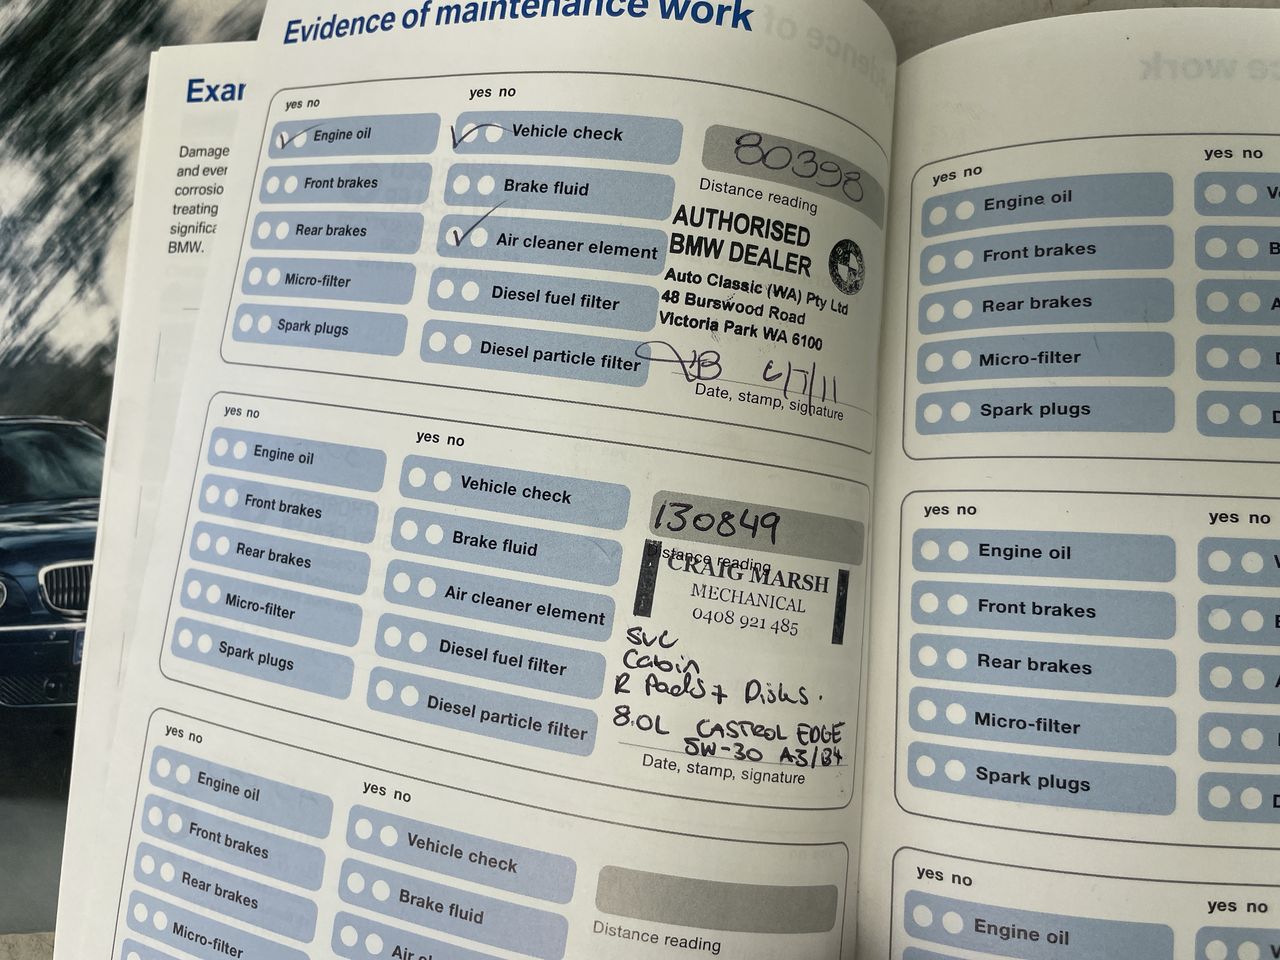 Evidence of maintenance work
Exar
Damage
and ever
corrosio
treating
significa
BMW.
yes no
Engine oil
Front brakes
Rear brakes
Micro-filter
Spark plugs
yes no
Vehicle check
Brake fluid
Air cleaner element
Diesel fuel filter
Diesel particle filter
80398
Distance reading
AUTHORISED
BMW DEALER
Auto Classic (WA) Pty Ltd
48 Burswood Road
Victoria Park WA 6100
6/7/11
Date, stamp, signature
yes no
Engine oil
Front brakes
Rear brakes
Micro-filter
Spark plugs
yes no
Vehicle check
Brake fluid
Air cleaner element
Diesel fuel filter
Diesel particle filter
130849
Distance reading
CRAIG MARSH
MECHANICAL
0408 921 485
SVC
Cabin
R Pads + Disks.
8.0L CASTROL EDGE
5W-30 A3/B4
Date, stamp, signature
yes no
Engine oil
Front brakes
Rear brakes
Micro-filter
yes no
Vehicle check
Brake fluid
Air cl
Distance reading
yes no
Engine oil
Front brakes
Rear brakes
Micro-filter
Spark plugs
yes no
yes no
Engine oil
Front brakes
Rear brakes
Micro-filter
Spark plugs
yes no
yes no
Engine oil
yes no